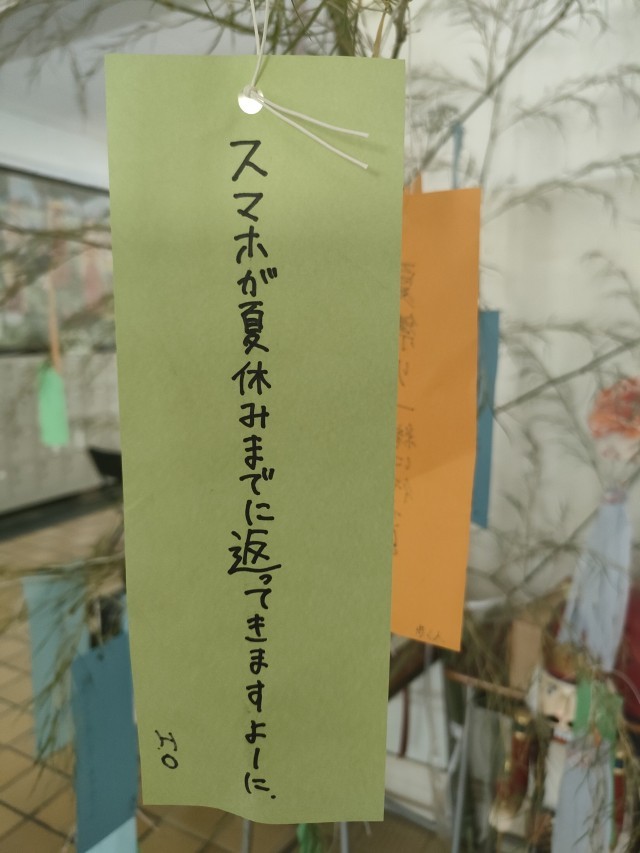 スマホが夏休みまでに返ってきますよーに.
I.O
夏祭り一緒に